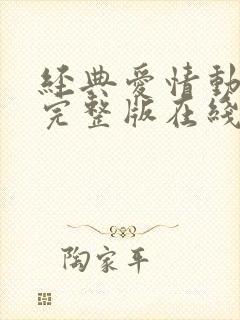 經典愛情動
完整版在綫
陶家平